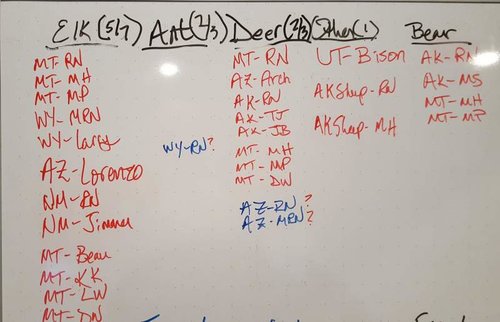 Elk (5/7) Ant (2/3) Deer (2/3) Other (1) Bear
MT-RN
MT-MH
MT-MP
WY-MRN
WY-Larry
AZ-Lorenzo
NM-RN
NM-Jimmer
MT-Beau
MT-KK
MT-LW
MT-DN
WY-RN?
MT-RN
AZ-Arch
AK-RN
AK-TJ
AK-JB
MT-MH
MT-MP
MT-DW
AZ-RN?
AZ-MRN?
UT-Bison
AK Sheep-RN
AK Sheep-MH
AK-RN
AK-MS
MT-MH
MT-MP